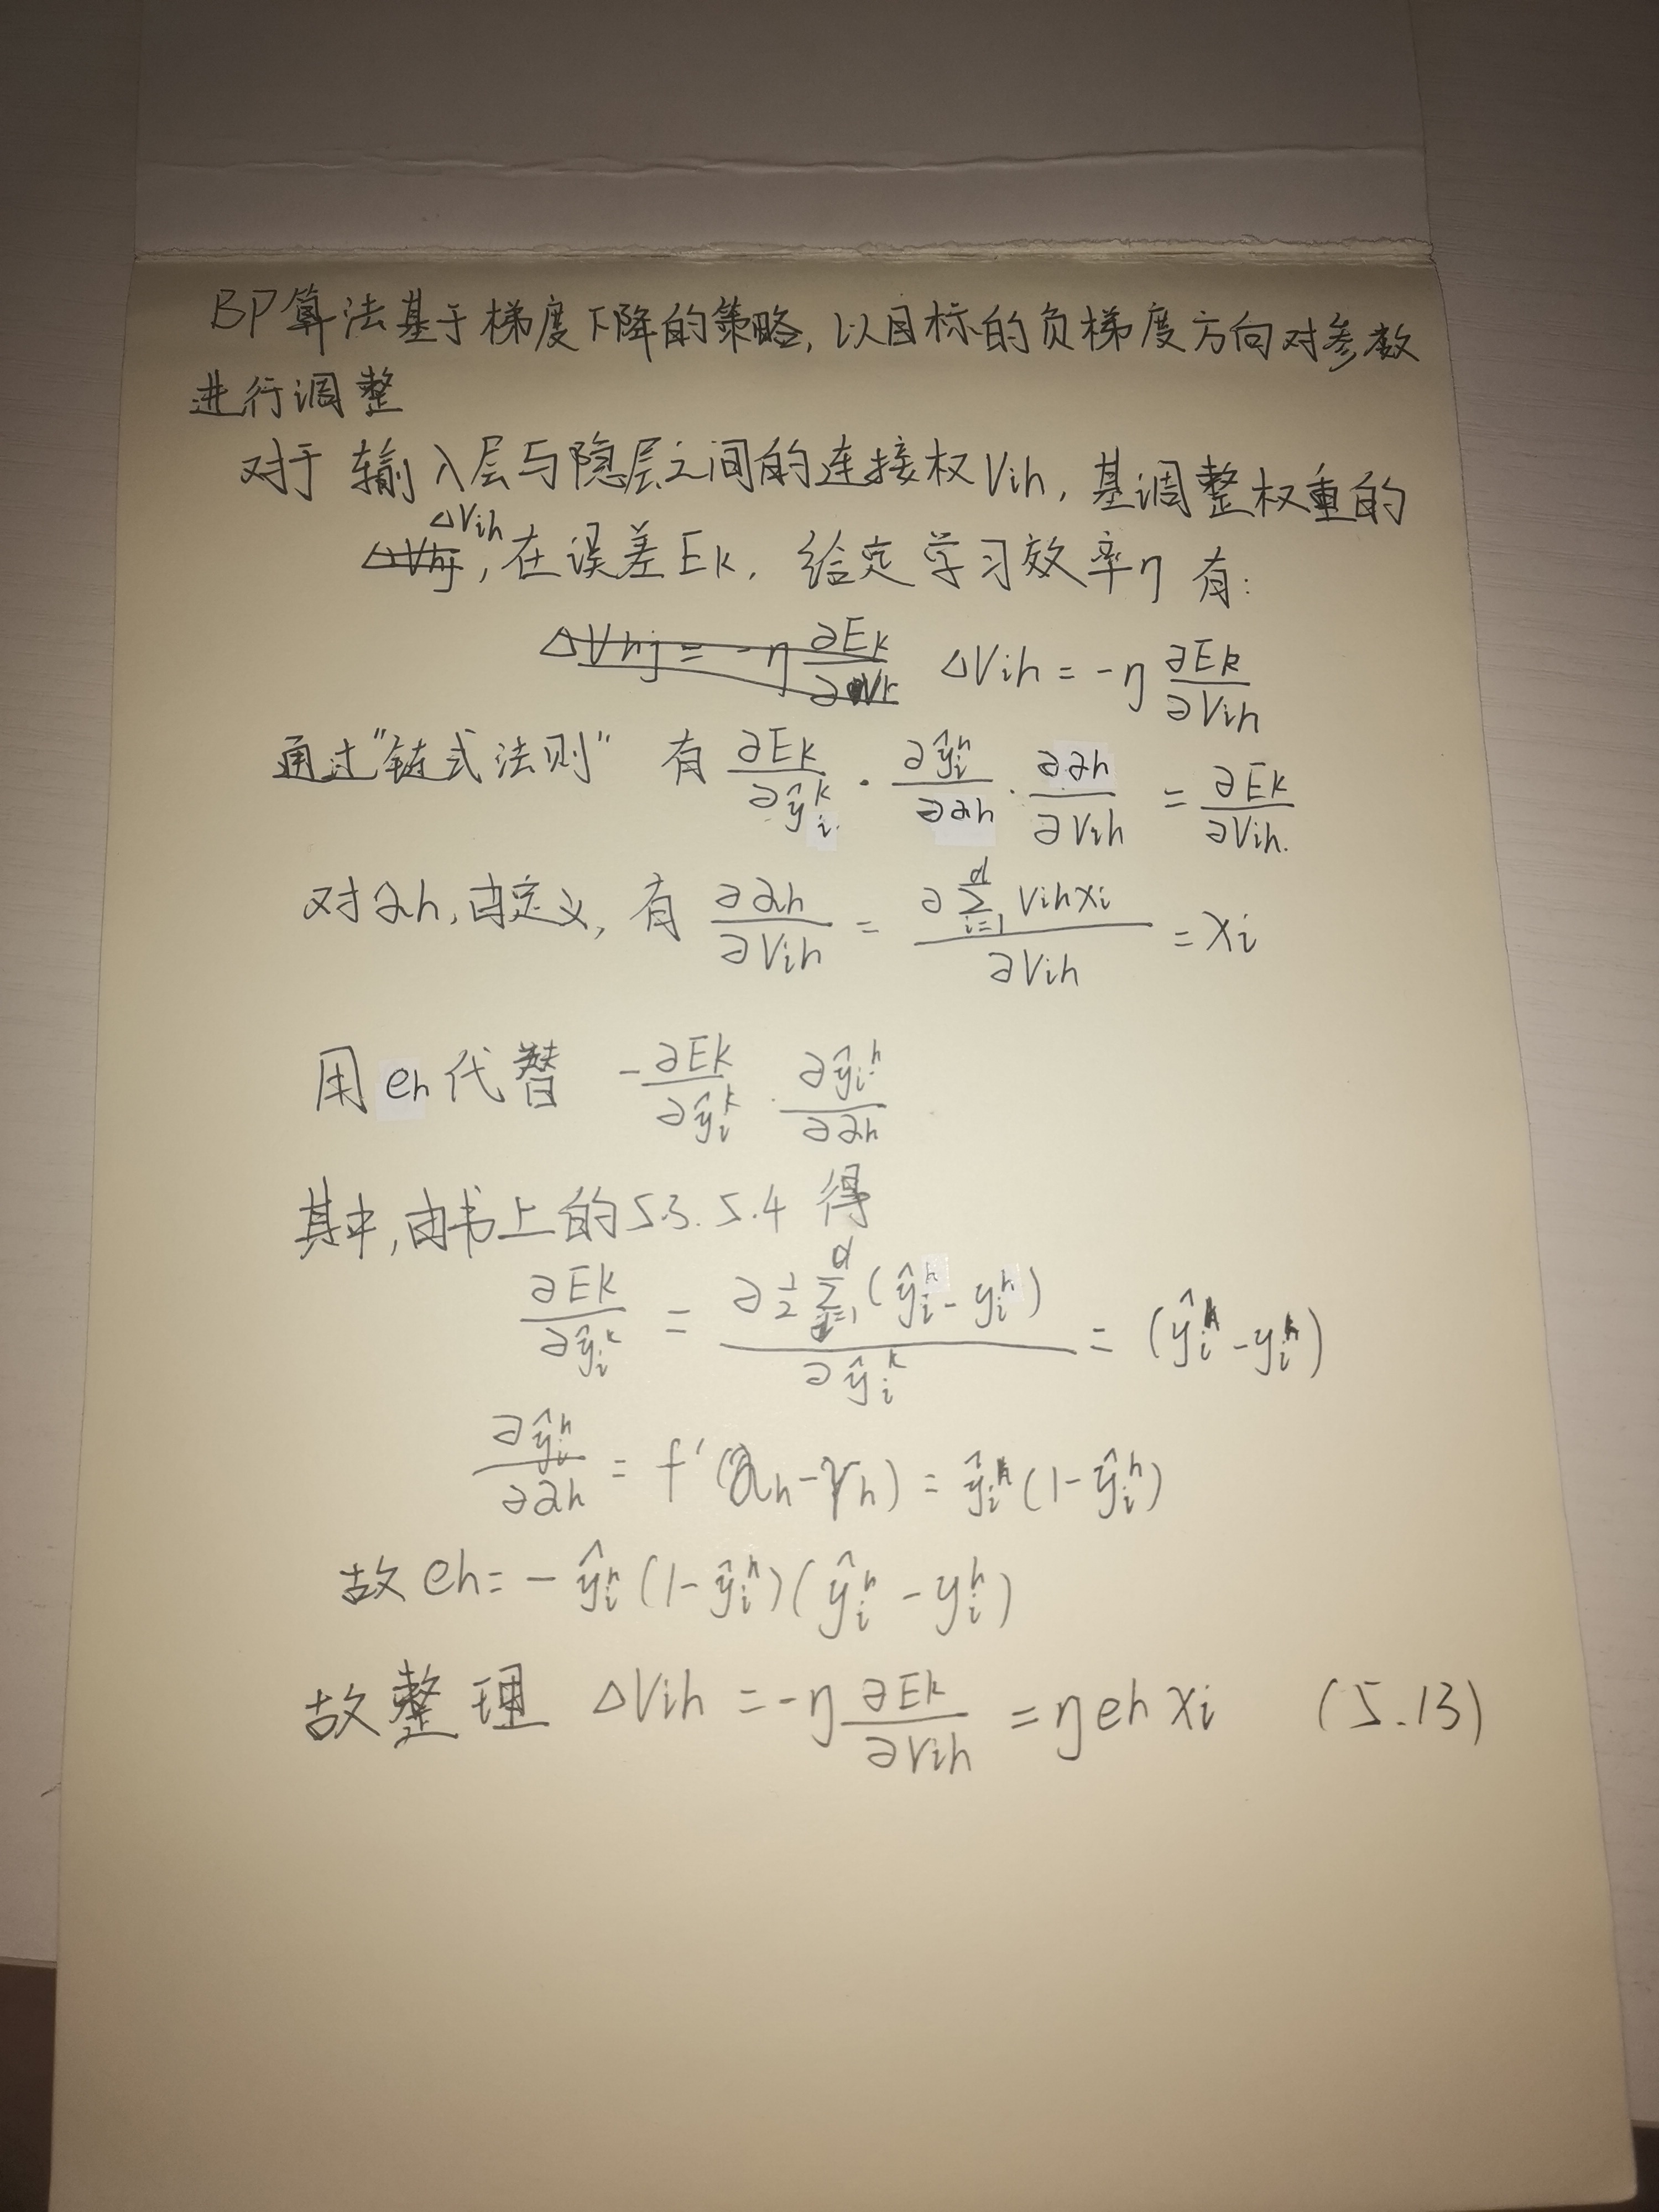 BP算法基于梯度下降的策略,以目标的负梯度方向对参数
进行调整
对于 输入层与隐层之间的连接权Vih,基调整权重的
ΔVih
ΔVhj,在误差Ek,给定学习效率η有:
ΔVhj = -η ∂Ek/∂ ΔVih = -η ∂Ek/∂Vih
通过"链式法则" 有 ∂Ek/∂ŷᵢᵏ · ∂ŷᵢʰ/∂∂h · ∂∂h/∂Vih = ∂Ek/∂Vih.
对∂h,由定义,有 ∂∂h/∂Vih = ∂∑ᵢ₌₁ᵈ Vihxi/∂Vih = xi
用eh代替 -∂Ek/∂ŷᵢᵏ · ∂ŷᵢʰ/∂∂h
其中,由书上的5.3.5.4 得
∂Ek/∂ŷᵢᵏ = ∂½∑ᵈ(ŷᵢʰ - yᵢʰ)/∂ŷᵢᵏ = (ŷᵢᵏ - yᵢᵏ)
∂ŷᵢʰ/∂∂h = f'(∂h - γh) = ŷᵢʰ(1-ŷᵢʰ)
故 eh = -ŷᵢʰ(1-ŷᵢʰ)(ŷᵢʰ - yᵢʰ)
故整理 ΔVih = -η ∂Ek/∂Vih = ηehxi (5.13)